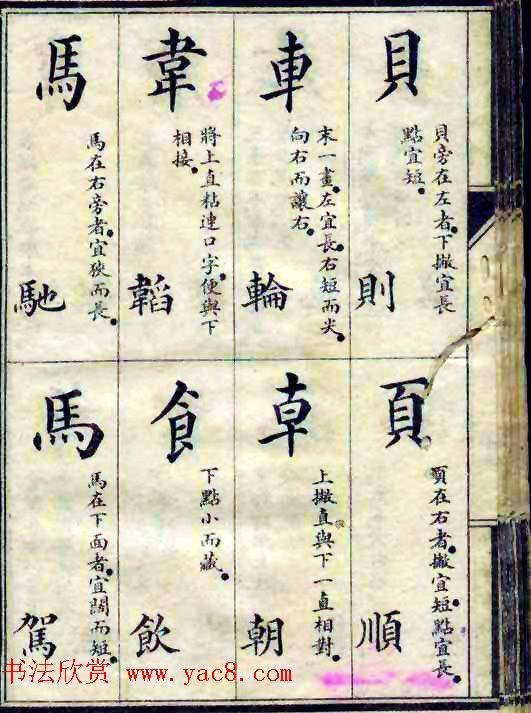 貝
貝旁在左者。下撇宜長
點宜短。
則
車
末一畫。左宜長。右短而尖。
向右而讓右。
輪
韋
將上直粘連口字。便與下
相接。
韜
馬
馬在右旁者。宜狹而長。
馳
頁
頁在右者。撇宜短。點宜長。
順
卓
上撇直與下一直相對。
朝
食
下點小而藏。
飲
馬
馬在下面者。宜闊而短。
駕
书法欣赏 www.yac8.com